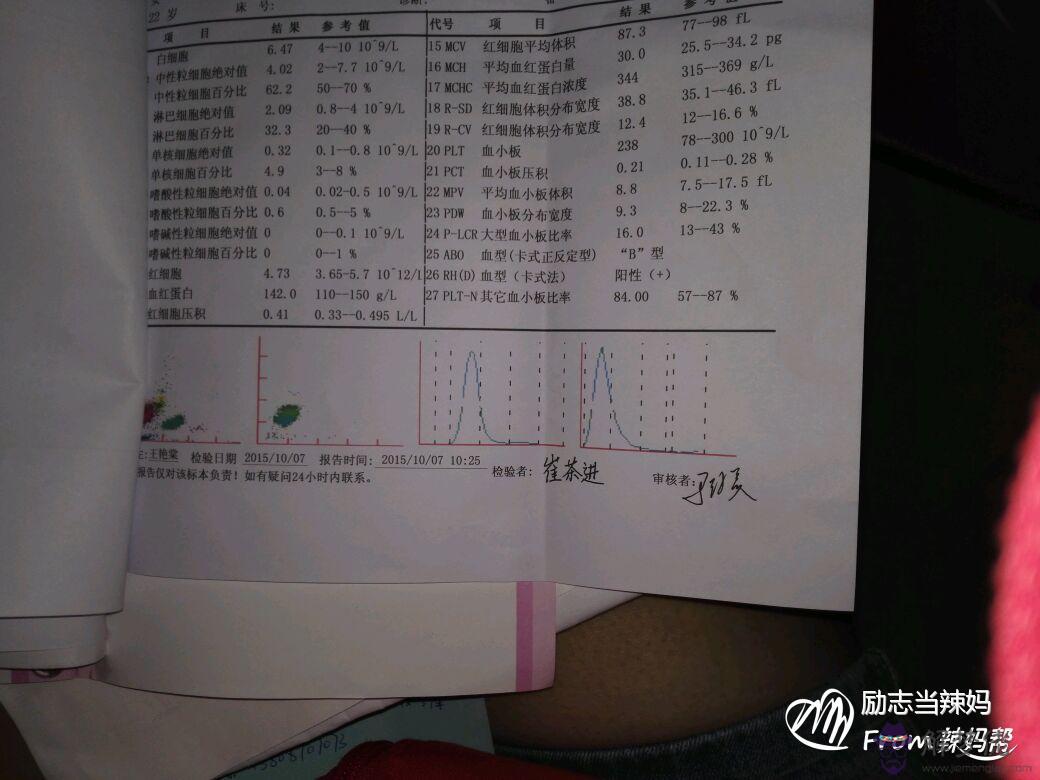 22 岁 床 号:
项 目 结 果 参 考 值
白细胞 6.47 4--10 10^9/L
中性粒细胞绝对值 4.02 2--7.7 10^9/L
中性粒细胞百分比 62.2 50--70 %
淋巴细胞绝对值 2.09 0.8--4 10^9/L
淋巴细胞百分比 32.3 20--40 %
单核细胞绝对值 0.32 0.1--0.8 10^9/L
单核细胞百分比 4.9 3--8 %
嗜酸性粒细胞绝对值 0.04 0.02-0.5 10^9/L
嗜酸性粒细胞百分比 0.6 0.5--5 %
嗜碱性粒细胞绝对值 0 0--0.1 10^9/L
嗜碱性粒细胞百分比 0 0--1 %
红细胞 4.73 3.65-5.7 10^12/L
血红蛋白 142.0 110--150 g/L
红细胞压积 0.41 0.33--0.495 L/L
代号 项 目 结 果 参 考 值
15 MCV 红细胞平均体积 87.3 77--98 fL
16 MCH 平均血红蛋白量 30.0 25.5--34.2 pg
17 MCHC 平均血红蛋白浓度 344 315--369 g/L
18 R-SD 红细胞体积分布宽度 38.8 35.1--46.3 fL
19 R-CV 红细胞体积分布宽度 12.4 12--16.6 %
20 PLT 血小板 238 78--300 10^9/L
21 PCT 血小板压积 0.21 0.11--0.28 %
22 MPV 平均血小板体积 8.8 7.5--17.5 fL
23 PDW 血小板分布宽度 9.3 8--22.3 %
24 P-LCR 大型血小板比率 16.0 13--43 %
25 ABO 血型(卡式正反定型) “B”型
26 RH(D) 血型（卡式法） 阳性（+）
27 PLT-N 其它血小板比率 84.00 57--87 %
:王艳棠 检验日期 2015/10/07 报告时间: 2015/10/07 10:25 检验者: 崔茶进 审核者:
报告仅对该标本负责！如有疑问24小时内联系。
励志当辣妈
From 辣妈帮